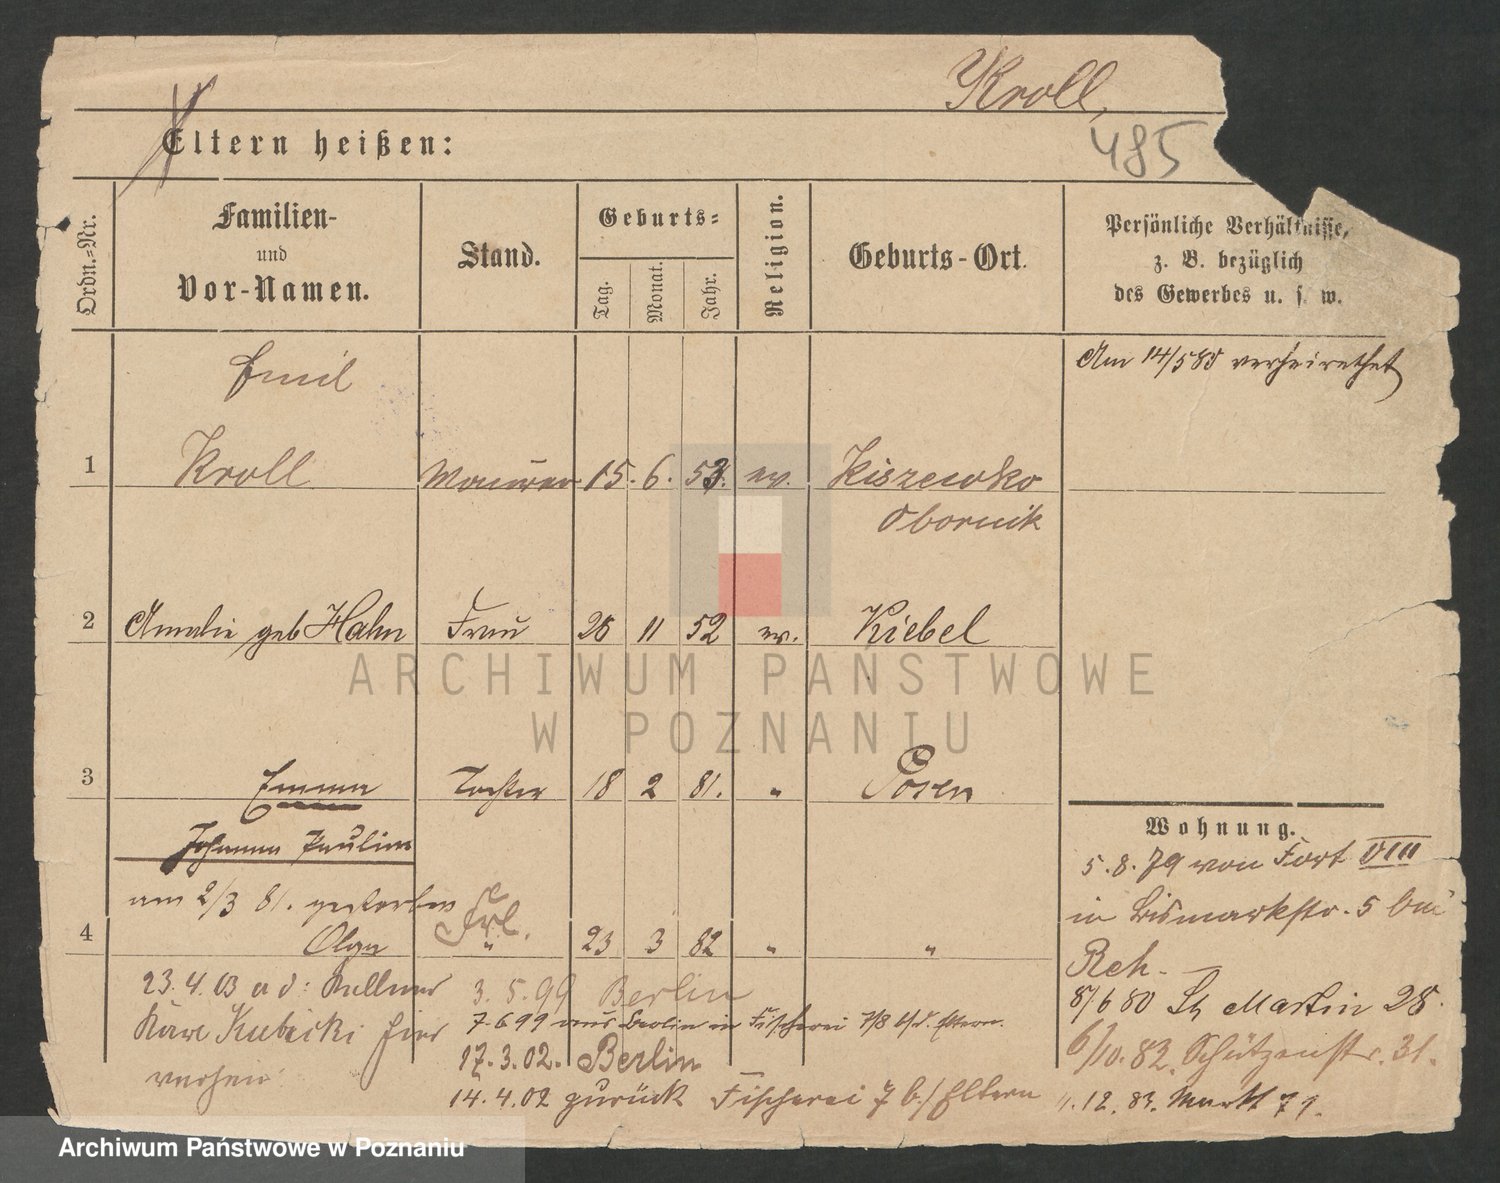 Kroll,
485
Eltern heißen:
Ordn.-Nr.
Familien-
und
Vor-Namen.
Stand.
Geburts-
Tag.
Monat.
Jahr.
Religion.
Geburts-Ort.
Persönliche Verhältnisse,
z. B. bezüglich
des Gewerbes u. s. w.
Emil
Am 14/5 80 verheirathet
1 Kroll Maurer 15. 6. 53. ev. Kiszewko
Obornik
2 Amalie geb Hahn Frau 26 11 52 ev. Kiebel
3 Emma Tochter 18 2 81. " Posen
Johanna Pauline
am 2/3 81. gestorben
Frl.
4 Olga " 23 3 82 " "
23.4.03 a d: Kellner
Kubicki hier
3.5.99 Berlin
7.6 99 aus Berlin in Fischerei 7/8 b/d. Eltern.
17.3.02. Berlin
14.4.02 zurück Fischerei 7 b./Eltern
Wohnung.
5.8.79 von Fort VIII
in Bismarkstr. 5 bei
Reh.
8/6 80 St Martin 28.
6/10. 82. Schützenstr. 31.
4.12.83. Markt 71.
ARCHIWUM PAŃSTWOWE
W POZNANIU
Archiwum Państwowe w Poznaniu